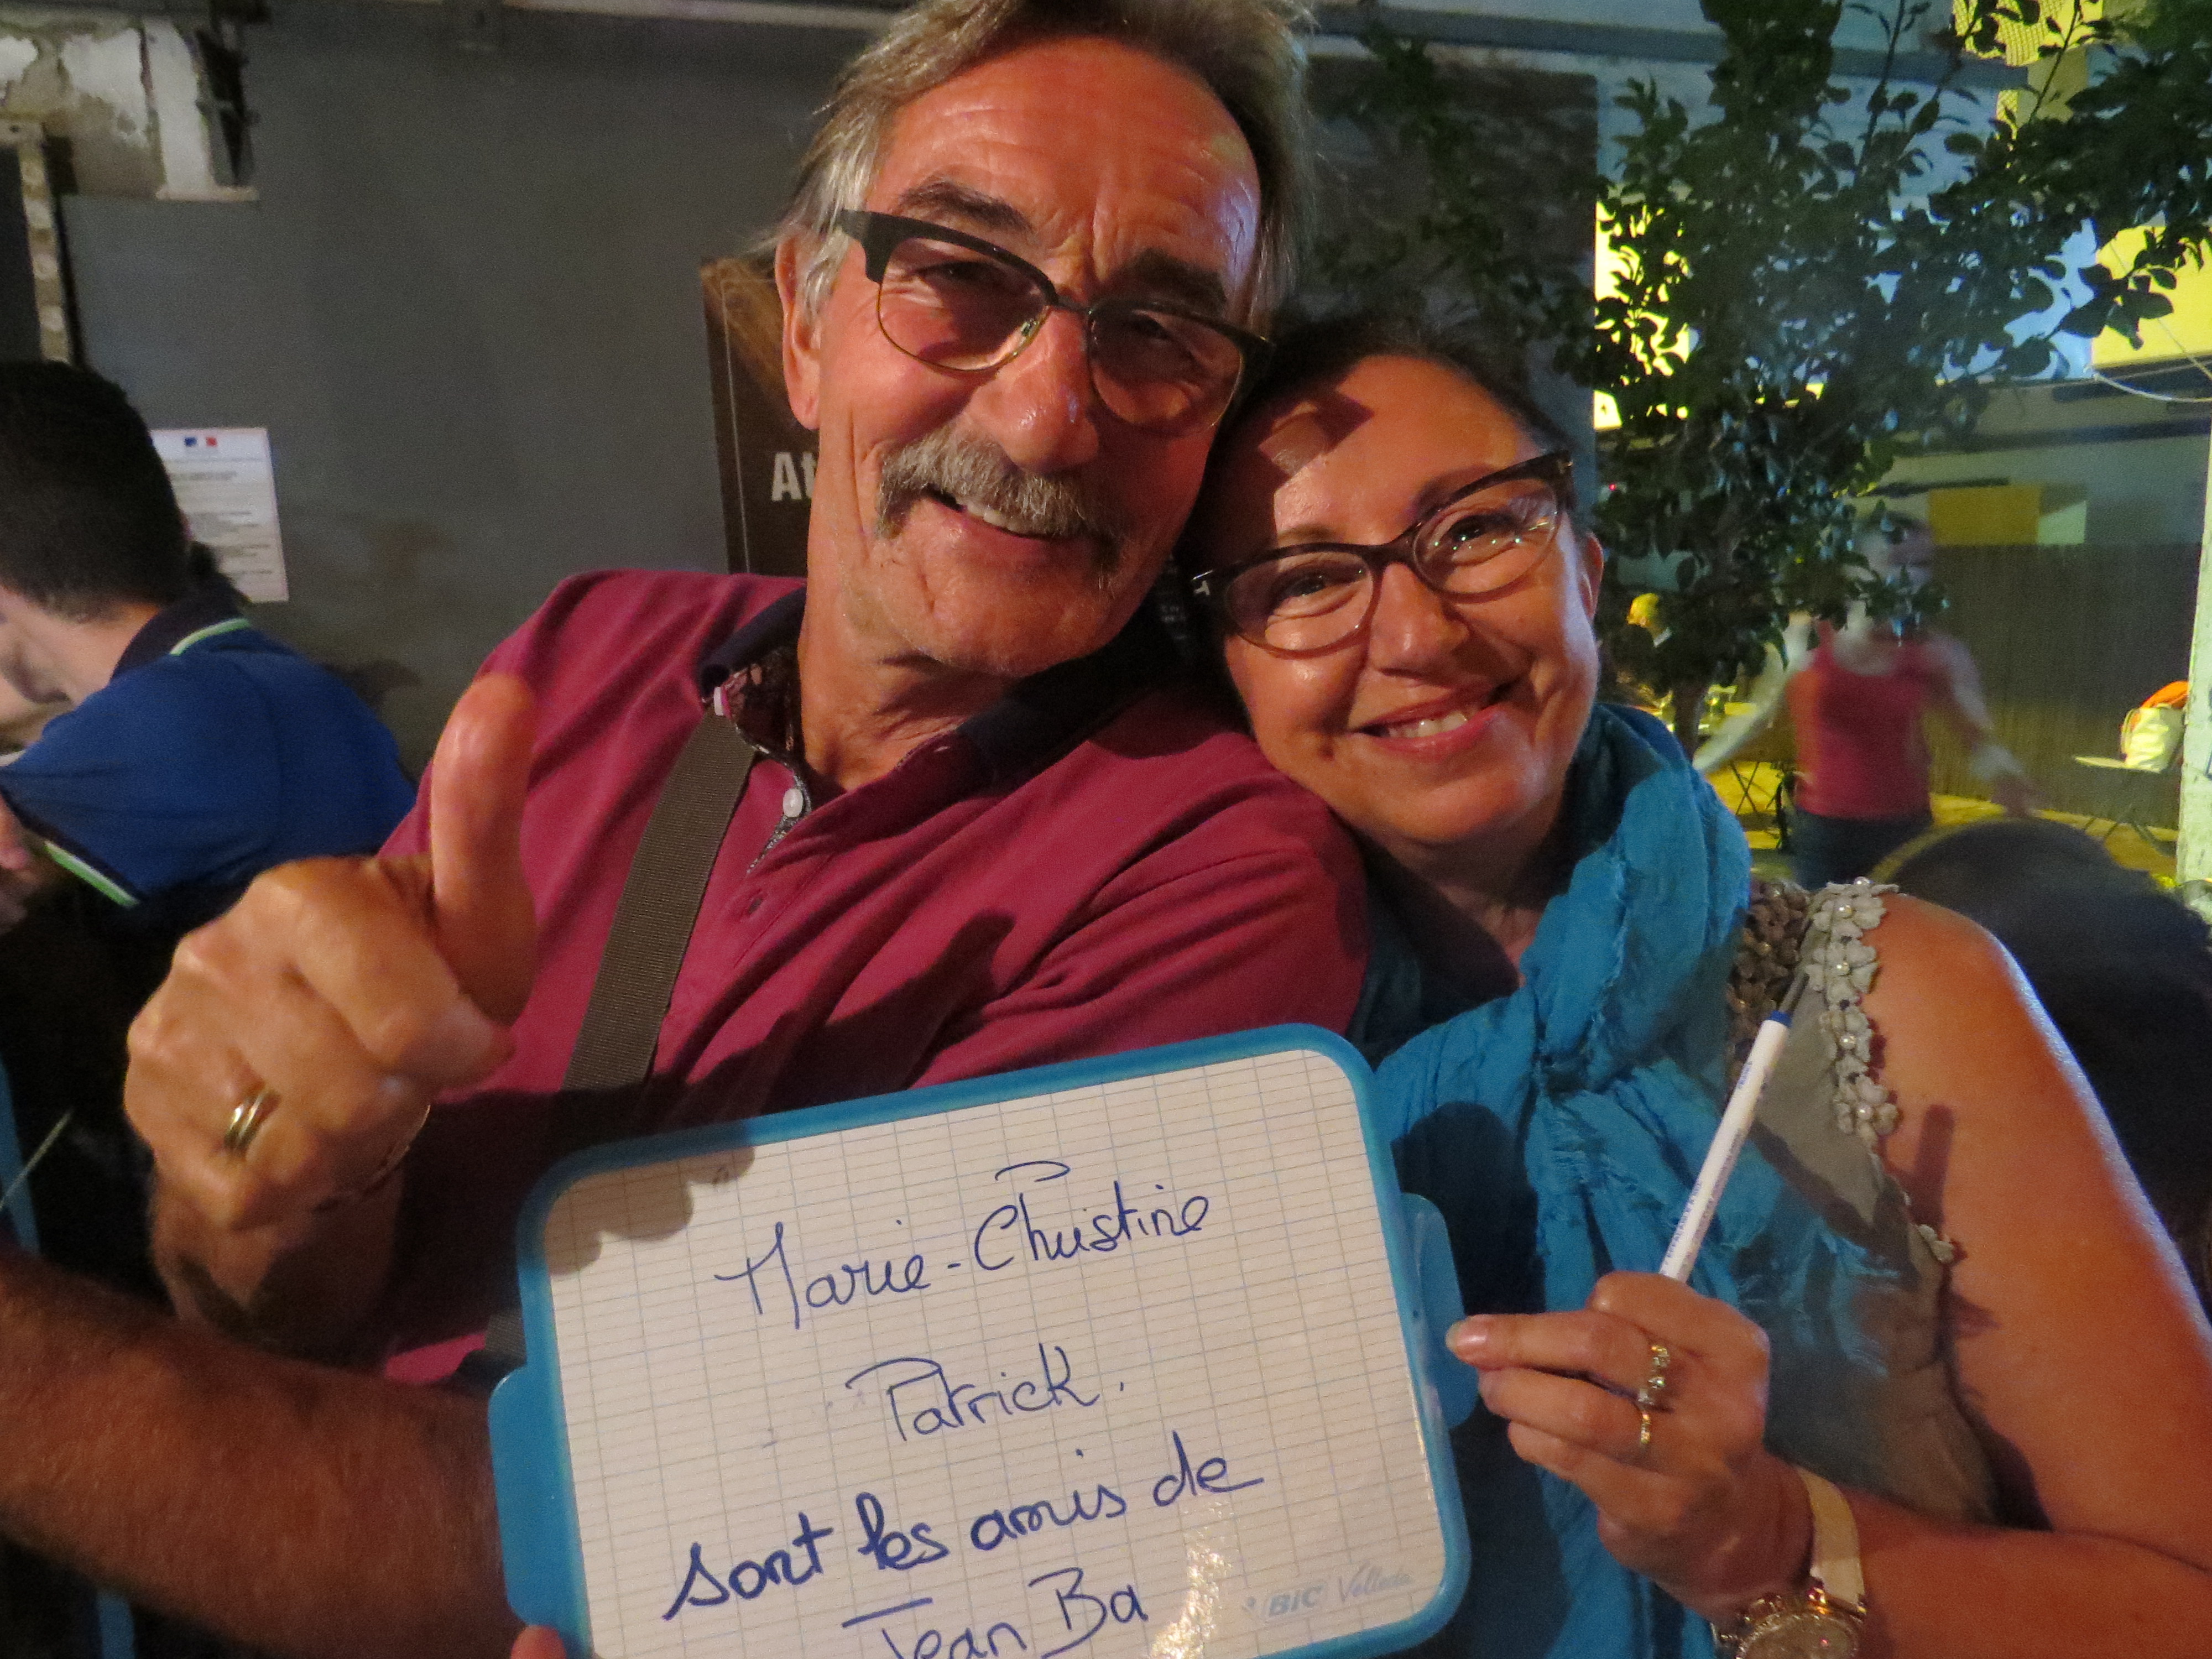 At
Marie-Christine
Patrick.
sont les amis de
Jean Ba
BIC Velleda